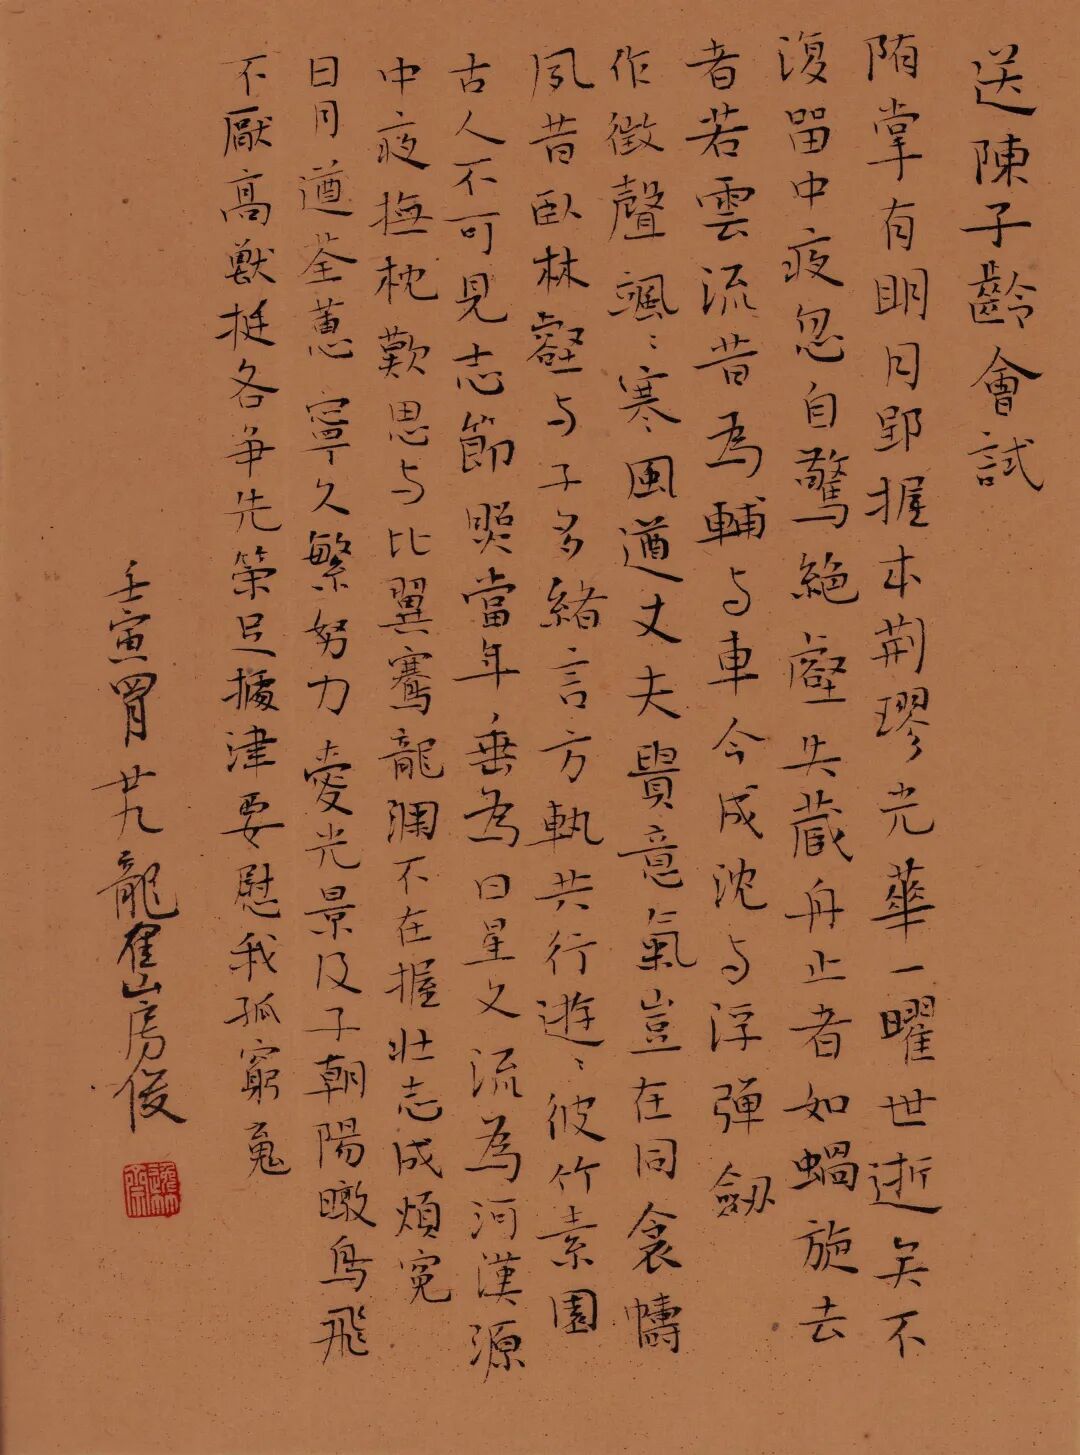 送陳子齡會試
隋掌有明月郢握本荆璆光華一曜世逝矣不
復留中夜忽自驚絶壑失藏舟止者如蝸旋去
者若雲流昔為輔与車今成沈与浮彈劔
作徵聲颯〻寒風遒丈夫貴意氣豈在同衾幬
夙昔臥林壑与子多緒言方執共行遊〻彼竹素園
古人不可見志節照當年垂為日星文流為河漢源
中夜撫枕歎思与比翼騫龍淵不在握壯志成煩冤
日月遒荃蕙寧久繁努力愛光景及子朝陽暾鳥飛
不厭高獸挺各爭先策足據津要慰我孤窮
壬寅胃廿九龍隺山房俊